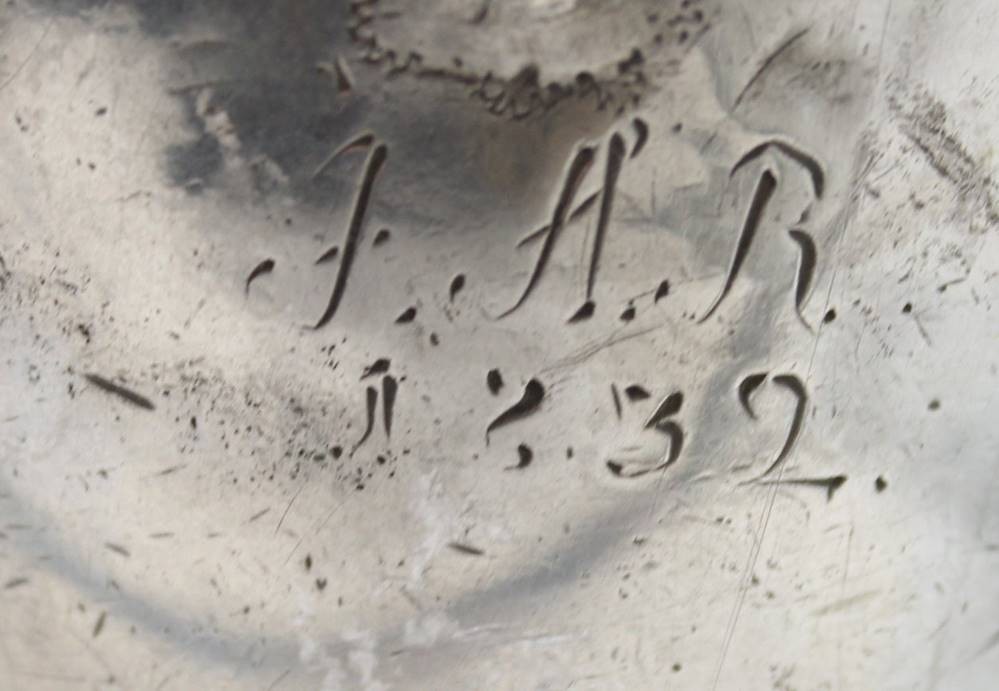 J. A. R.
1732.